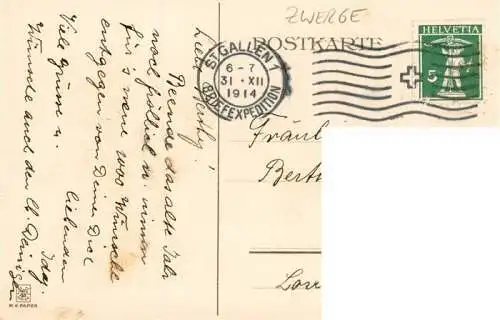 ZWERGE
POSTKARTE
HELVETIA
5
ST. GALLEN 1
6-7
31·XII
1914
BRIEFEXPEDITION
Liebe Berthy!
Beende das alte Jahr
noch fröhlich u. nimm
für's neue 1000 Wünsche
entgegen von Deiner Dich
liebenden
Idag.
Viele Grüsse u.
Wünsche auch den lb. Deinigen
Fräul
Bert
Lorr